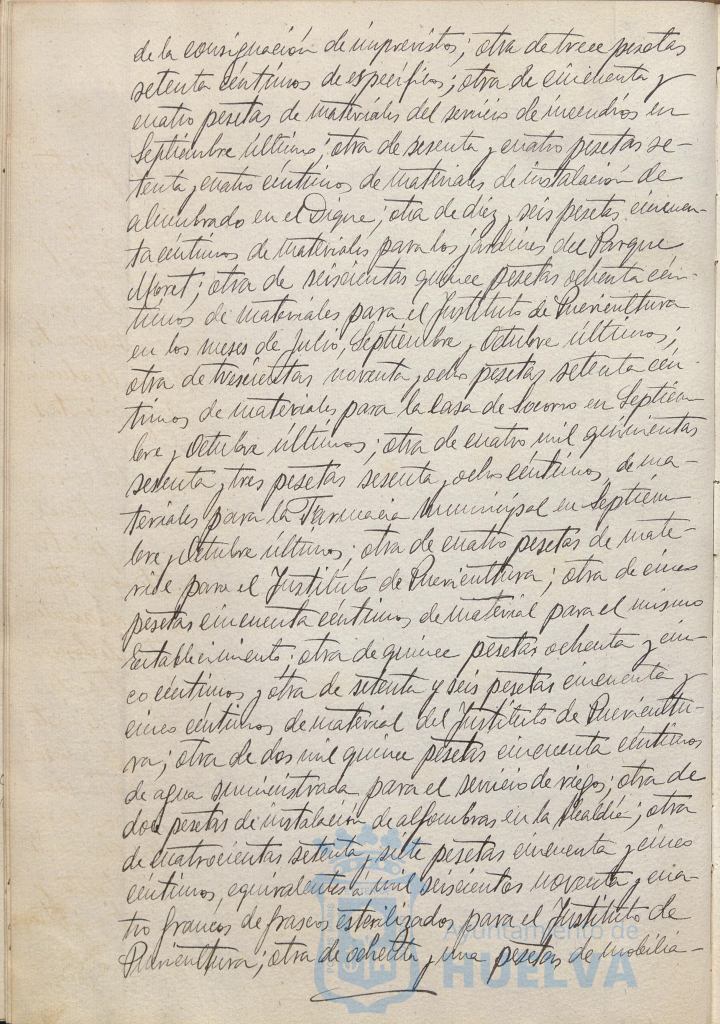 de la consignación de imprevistos; otra de trece pesetas
setenta céntimos de específicos; otra de cincuenta y
cuatro pesetas de materiales del servicio de incendios en
Septiembre último; otra de sesenta y cuatro pesetas se-
tenta y cuatro céntimos de materiales de instalación de
alumbrado en el Dique; otra de diez y seis pesetas cincuen-
ta céntimos de materiales para los jardines del Parque
Moret; otra de seiscientas quince pesetas ochenta cén-
timos de materiales para el Instituto de Puericultura
en los meses de Julio, Septiembre y Octubre últimos;
otra de trescientas noventa y ocho pesetas setenta cén-
timos de materiales para la Casa de Socorro en Septiem-
bre y Octubre últimos; otra de cuatro mil quinientas
sesenta y tres pesetas sesenta y ocho céntimos, de ma-
teriales para la Farmacia Municipal en Septiem-
bre y Octubre últimos; otra de cuatro pesetas de mate-
rial para el Instituto de Puericultura; otra de cinco
pesetas cincuenta céntimos de material para el mismo
establecimiento: otra de quince pesetas ochenta y cin-
co céntimos y otra de setenta y seis pesetas cincuenta y
cinco céntimos de material del Instituto de Puericultu-
ra; otra de dos mil quince pesetas cincuenta céntimos
de agua suministrada para el servicio de riego; otra de
doce pesetas de instalación de alfombras en la Alcaldía; otra
de cuatrocientas setenta y siete pesetas cincuenta y cinco
céntimos, equivalentes a mil seiscientos noventa y cua-
tro francos de frascos esterilizados para el Instituto de
Puericultura; otra de ochenta y una pesetas de mobilia-
Ayuntamiento de
HUELVA